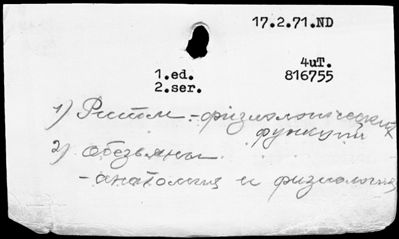 17.2.71.ND
4uT.
1.ed. 816755
2.ser.
1) Ритм физиологических
функций
2) обезьяны
- анатомия и физиология